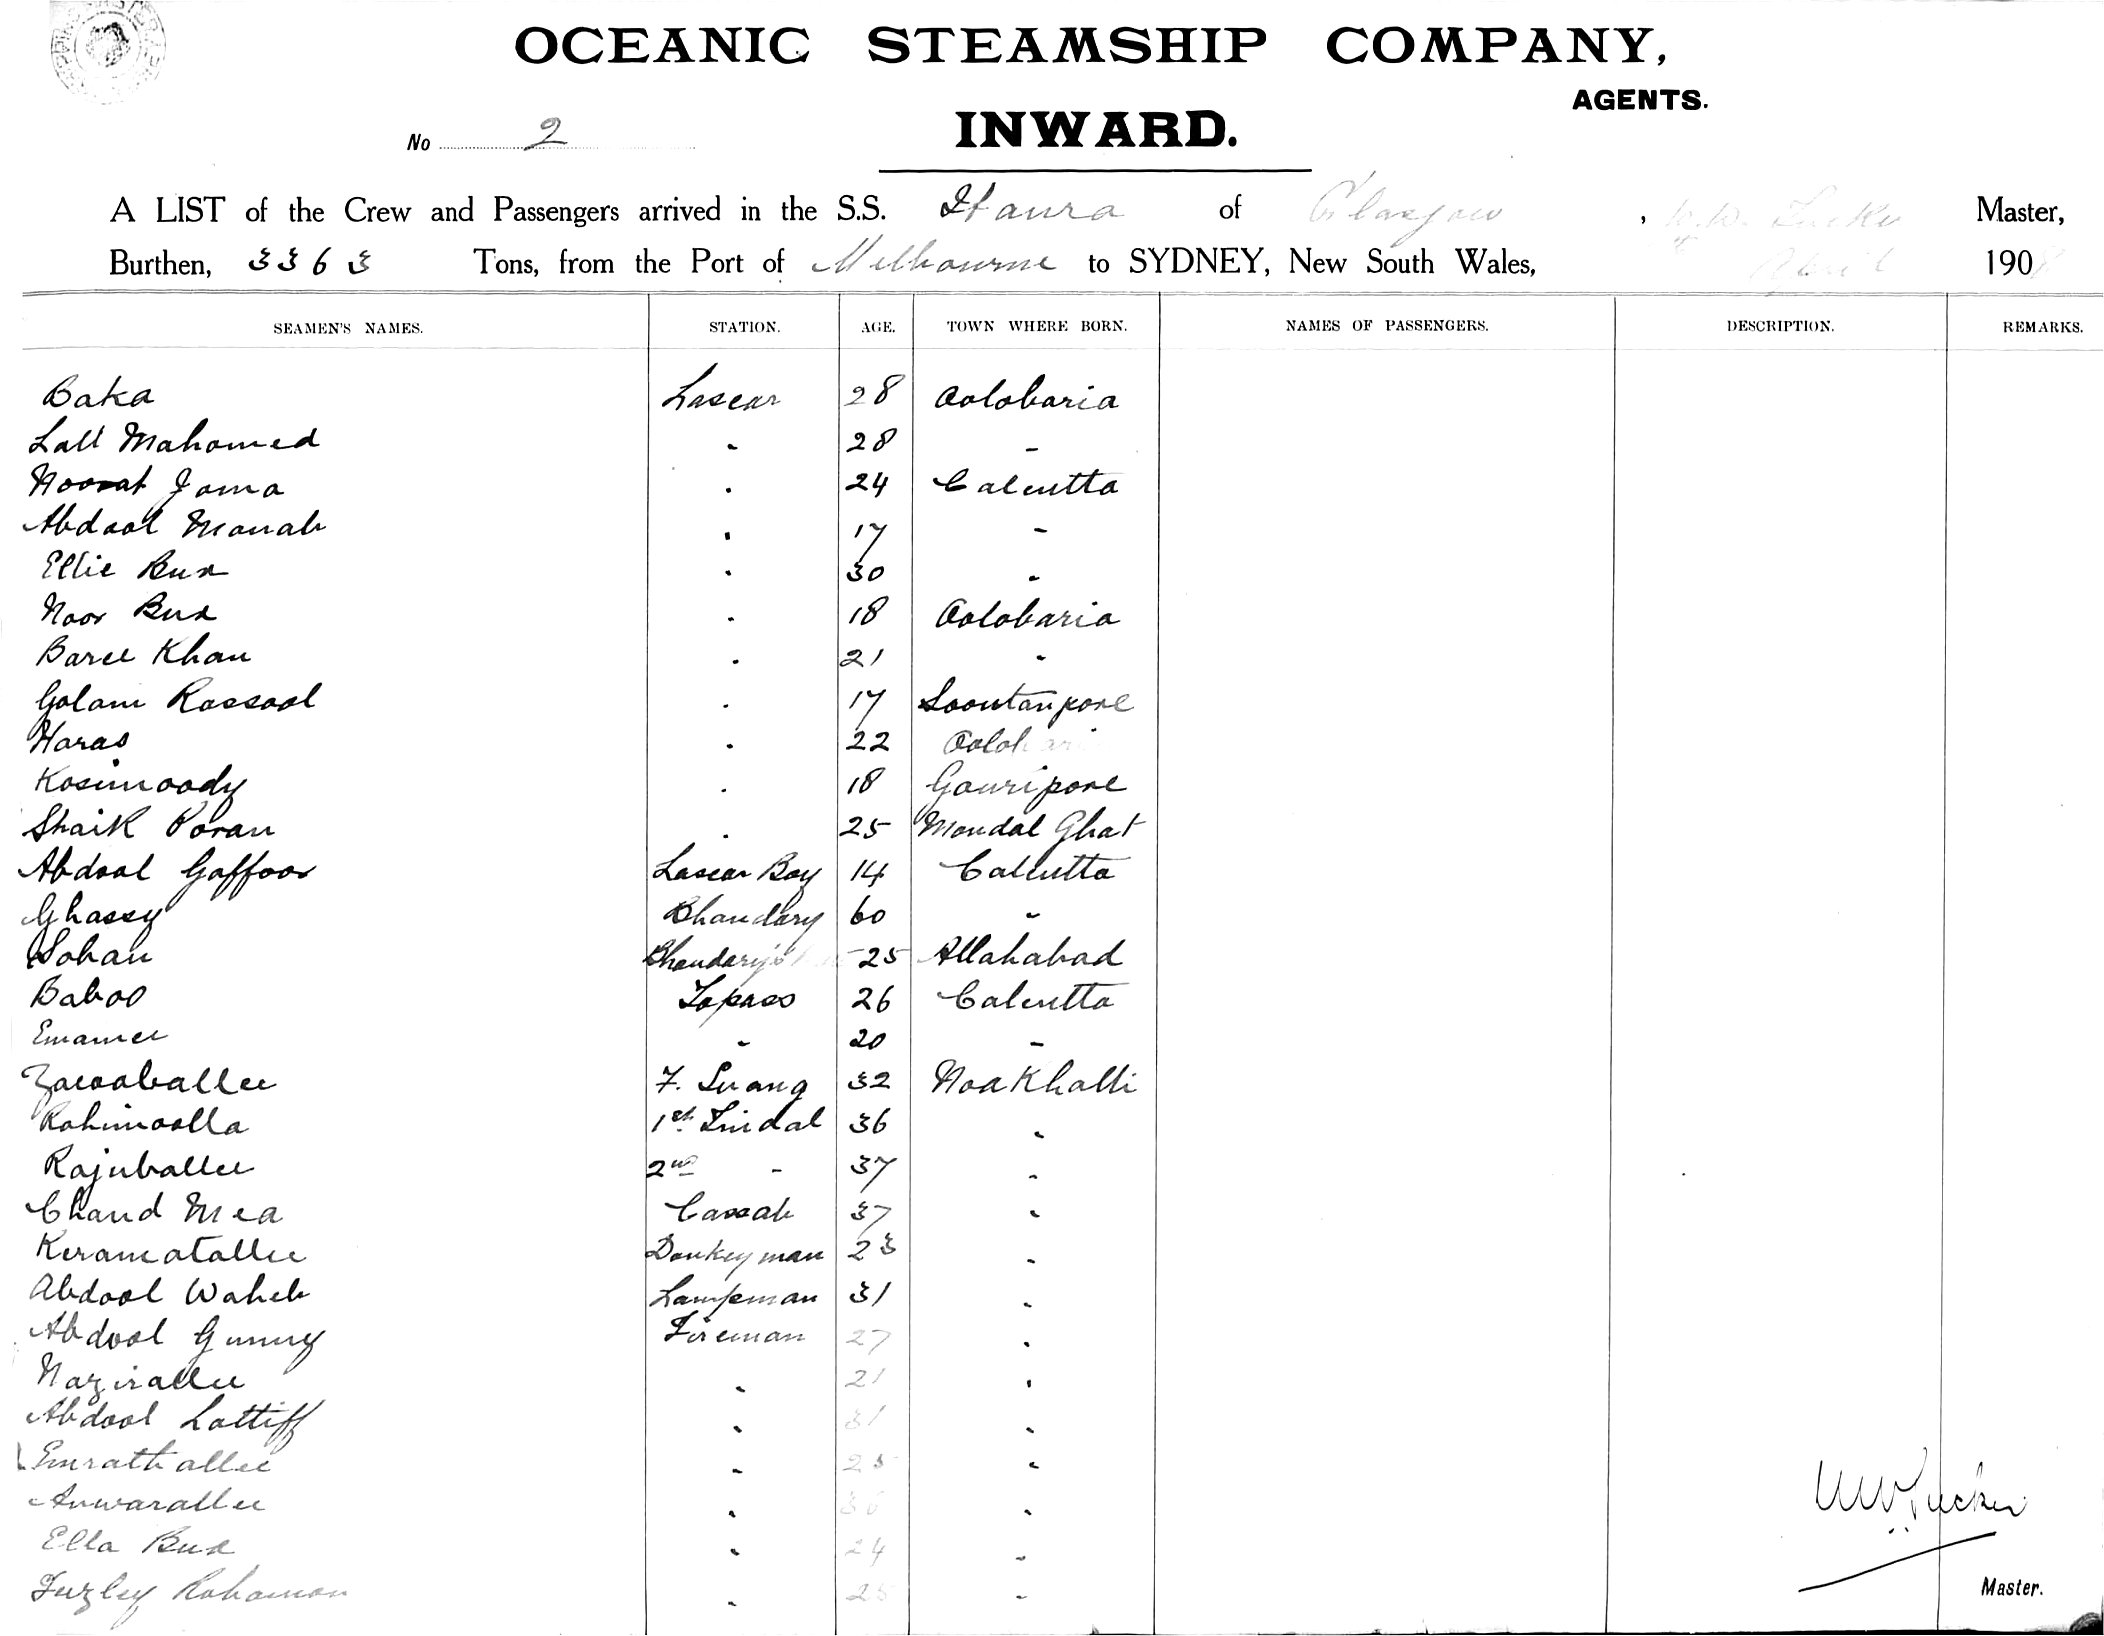 OCEANIC STEAMSHIP COMPANY,
AGENTS.
No 2 INWARD.
A LIST of the Crew and Passengers arrived in the S.S. Itaura of Glasgow, W.W. Tucker Master,
Burthen, 3363 Tons, from the Port of Melbourne to SYDNEY, New South Wales, April 1908
SEAMEN'S NAMES. STATION. AGE. TOWN WHERE BORN. NAMES OF PASSENGERS. DESCRIPTION. REMARKS.
Baka Lascar 28 Oolobaria
Lall Mahomed " 28 "
Noorat Joma " 24 Calcutta
Abdool Monab " 17 "
Ellie Bux " 30 "
Noor Bux " 18 Oolobaria
Baree Khan " 21 "
Golam Rossool " 17 Sooutanpore
Haras " 22 Oolobari
Kosimoody " 18 Gouripore
Shaik Poran " 25 Mondal Ghat
Abdool Goffoor Lascar Boy 14 Calcutta
Ghassy Bhandary 60 "
Sohan Bhandary's 25 Allahabad
Baboo Topass 26 Calcutta
Emamee " 20 "
Zacooballee F. Serang 32 Noakhalli
Rohimoolla 1st Tindal 36 "
Rajuballee 2nd " 37 "
Chand Mea Cassab 37 "
Keramatallee Donkeyman 23 "
Abdool Waheb Lampman 31 "
Abdool Gunny Fireman 27 "
Nazirallee " 21 "
Abdool Lottiff " 31 "
Emrathallee " 25 "
Anwarallee " 36 "
Ella Bux " 24 "
Fuzley Rohomon " 25 "
WW Tucker
Master.